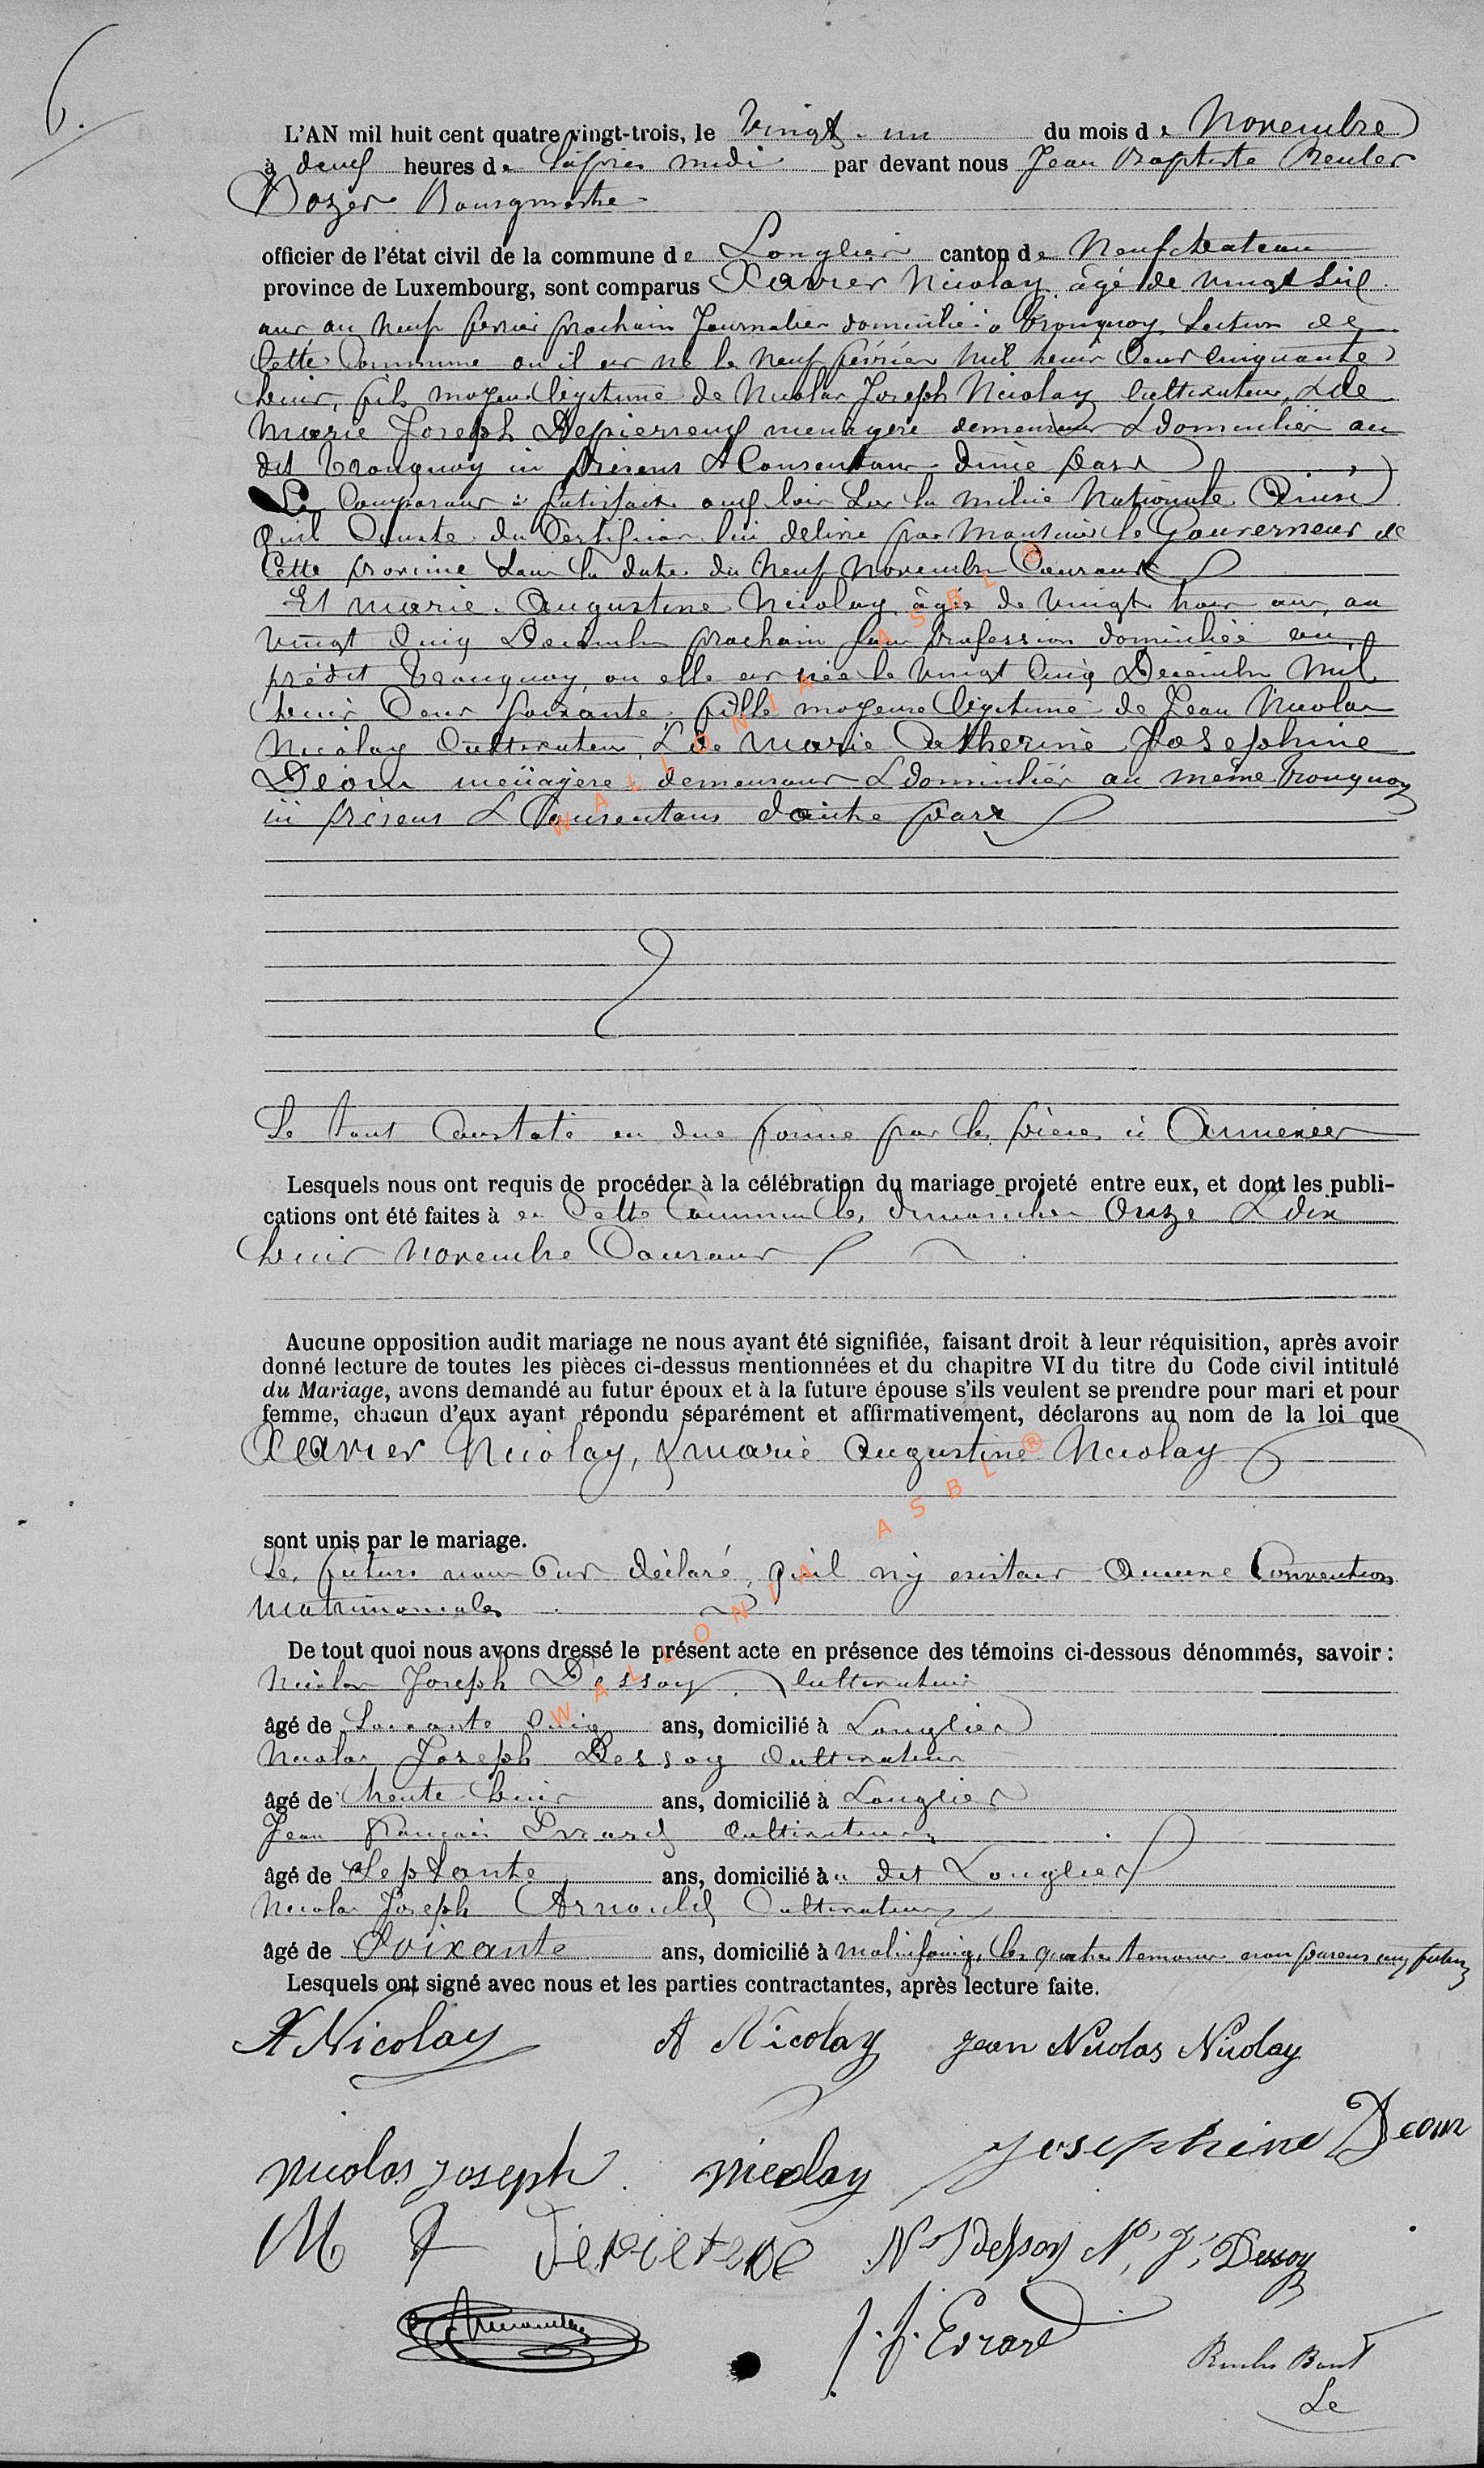 6.
L'AN mil huit cent quatre vingt-trois, le Vingt-un du mois de Novembre
à deux heures de l'après midi par devant nous Jean Baptiste Reuler
Bourgmestre
officier de l'état civil de la commune de Longlier canton de Neufchateau
province de Luxembourg, sont comparus Xavier Nicolay âgé de vingt six
ans au neuf fevrier prochain Journalier domicilié à Tronquoy Section de
Cette Commune où il est né le neuf février Mil huit Cent Cinquante
huit, fils majeur légitime de Nicolas Joseph Nicolay Cultivateur, & de
Marie Joseph Depierreux menagère demeurant & domiciliés au
dit Tronquoy ici présens & Consentans d'une part
Le Comparant a satisfait aux lois sur la milice Nationale Ainsi
qu'il Conste du Certificat lui délivré par Monsieur le Gouverneur de
Cette province sous la date du Neuf Novembre Courant
Et Marie Augustine Nicolay âgée de Vingt trois ans, au
vingt Cinq Decembre prochain sans profession domiciliée au
prédit Tronquoy, où elle est née le Vingt Cinq Decembre Mil
huit Cent soixante, fille majeure légitime de Jean Nicolas
Nicolay Cultivateur, & de Marie Catherine Josephine
Déom menagère demeurant & domiciliés au même Tronquoy
ici présens & Consentans d'autre part
Le tout Constaté en due forme par les pièces ci Annexées
Lesquels nous ont requis de procéder à la célébration du mariage projeté entre eux, et dont les publi-
cations ont été faites à en Cette Commune les dimanches Onze & dix
huit Novembre Courant
Aucune opposition audit mariage ne nous ayant été signifiée, faisant droit à leur réquisition, après avoir
donné lecture de toutes les pièces ci-dessus mentionnées et du chapitre VI du titre du Code civil intitulé
du Mariage, avons demandé au futur époux et à la future épouse s'ils veulent se prendre pour mari et pour
femme, chacun d'eux ayant répondu séparément et affirmativement, déclarons au nom de la loi que
Xavier Nicolay, & Marie Augustine Nicolay
sont unis par le mariage.
Les futurs nous ont déclaré, qu'il n'y existait Aucune Convention
Matrimoniales
De tout quoi nous avons dressé le présent acte en présence des témoins ci-dessous dénommés, savoir :
Nicolas Joseph Dessoy Cultivateur
âgé de Soixante Cinq ans, domicilié à Longlier
Nicolas Joseph Dessoy Cultivateur
âgé de trente huit ans, domicilié à Longlier
Jean François Evrard Cultivateur
âgé de Septante ans, domicilié au dit Longlier
Nicolas Joseph Arnould Cultivateur
âgé de Soixante ans, domicilié à Molinfaing, les quatre temoins non parens aux futurs
Lesquels ont signé avec nous et les parties contractantes, après lecture faite.
X Nicolay A Nicolay Jean Nicolas Nicolay
Nicolas Joseph Nicolay Josephine Deom
M J Depierreux N Dessoy N. J. Dessoy
J. f. Evrard
Le
WALLONIA ASBL ®
WALLONIA ASBL ®